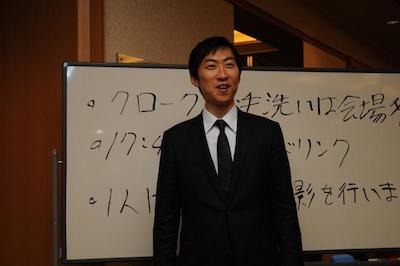 クローク 手洗いは会場外
17:4 ドリンク
1人 影を行いま